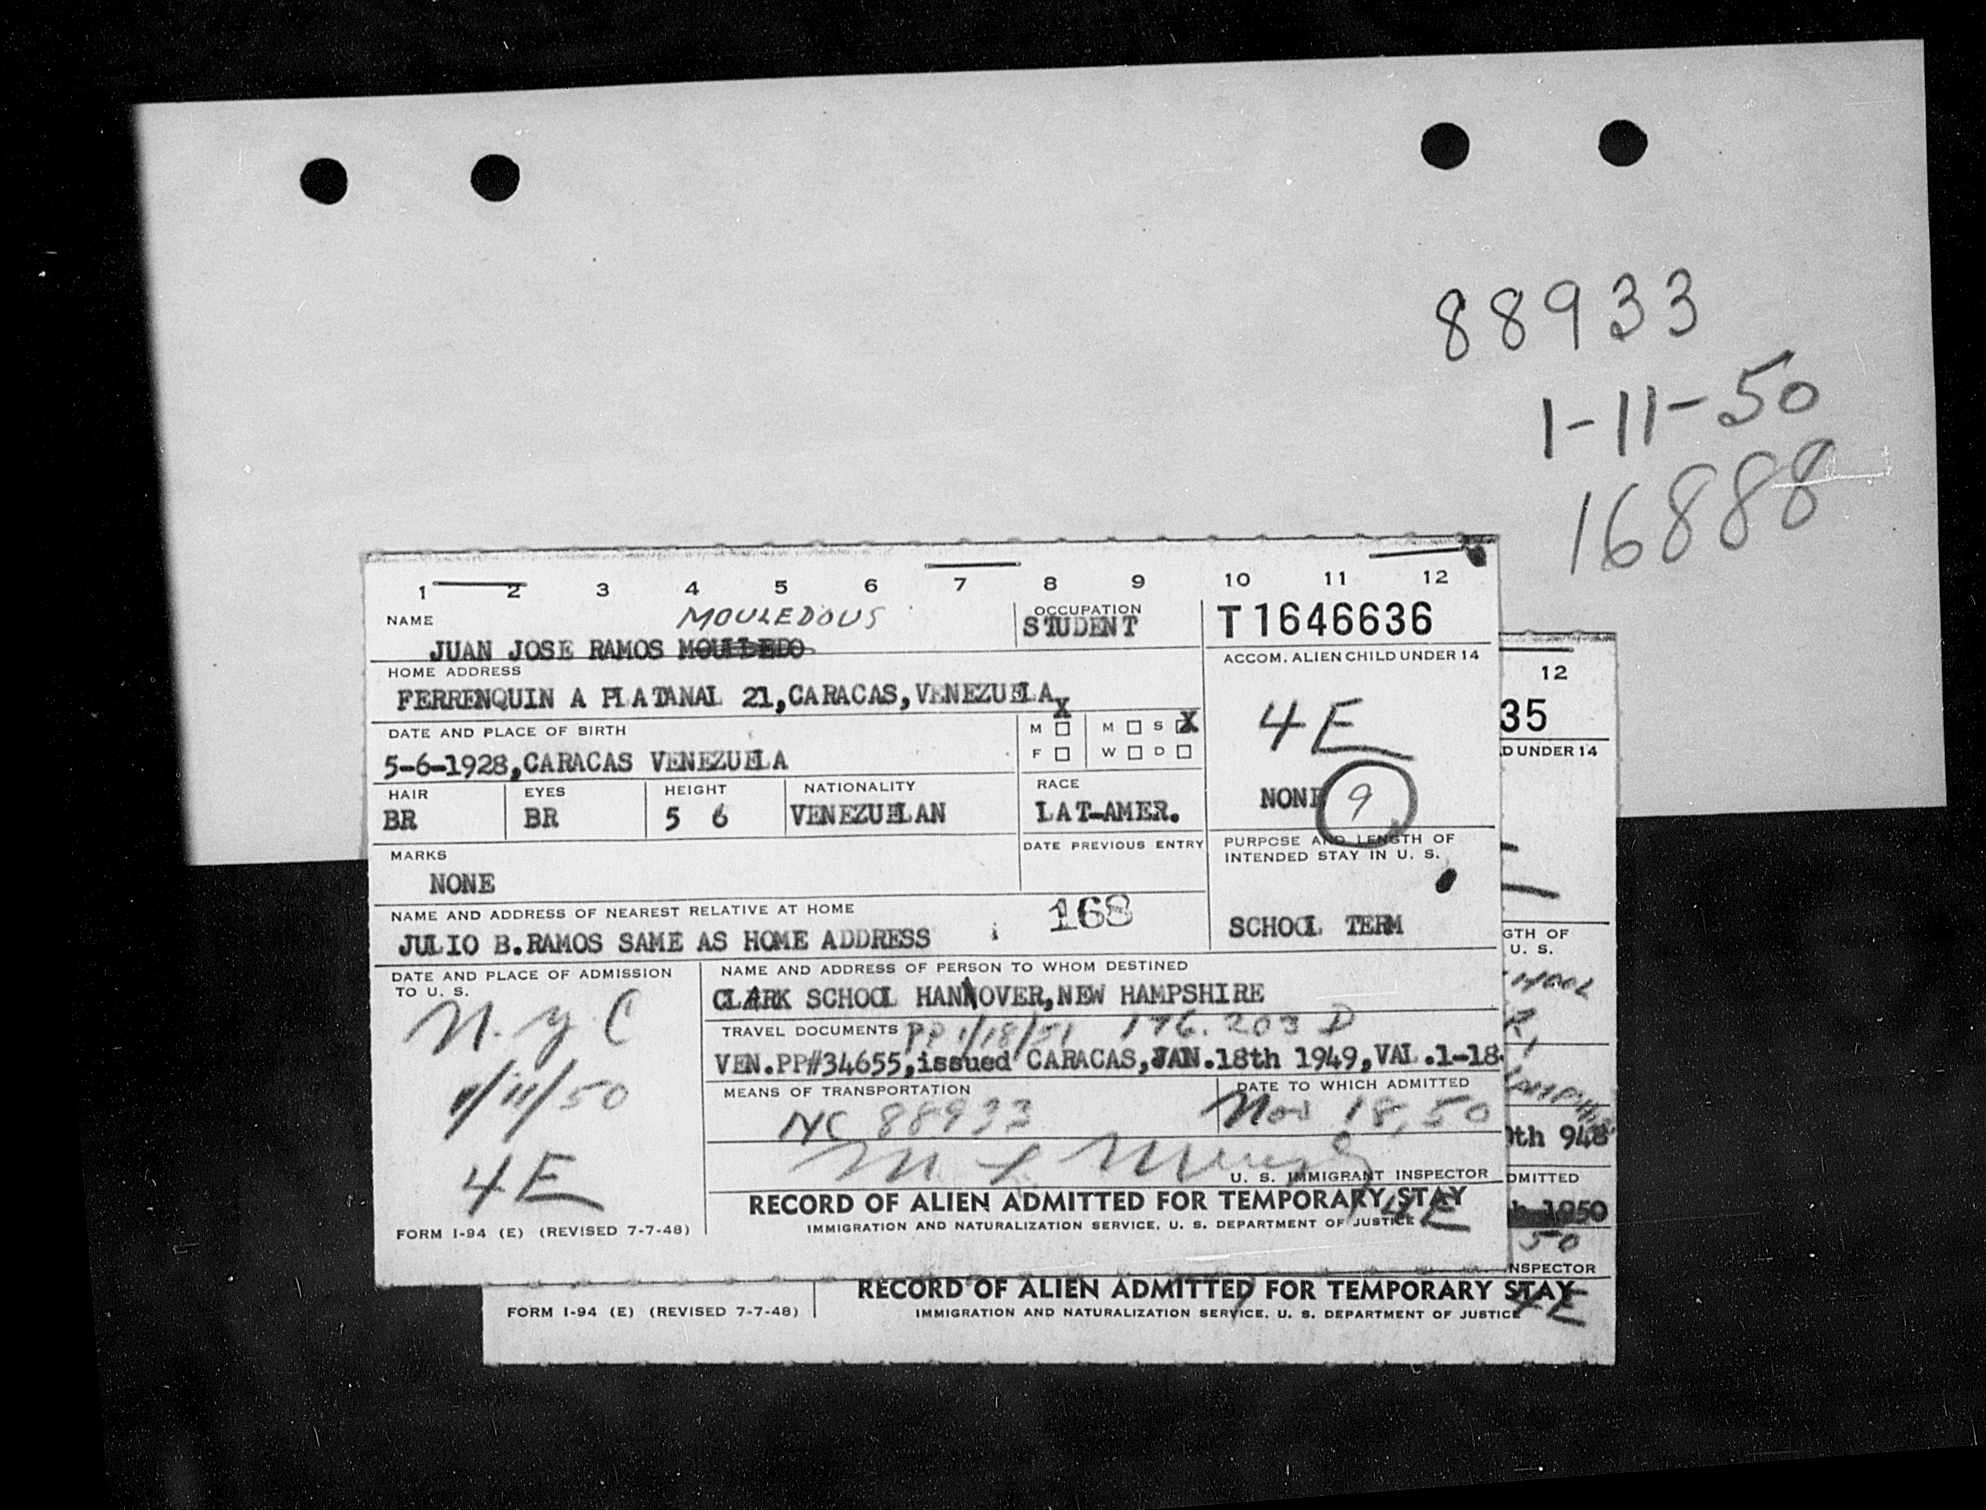 88933
1-11-50
16888
1 2 3 4 5 6 7 8 9 10 11 12
NAME MOULEDOUS
JUAN JOSE RAMOS MOULLEDO
OCCUPATION
STUDENT
T1646636
ACCOM. ALIEN CHILD UNDER 14
4E
NONE 9
HOME ADDRESS
FERRENQUIN A PLATANAL 21,CARACAS,VENEZUELA
DATE AND PLACE OF BIRTH
5-6-1928,CARACAS VENEZUELA
X
M M S X
F W D
HAIR EYES HEIGHT NATIONALITY RACE
BR BR 5 6 VENEZUELAN LAT-AMER.
MARKS
NONE
DATE PREVIOUS ENTRY
PURPOSE AND LENGTH OF
INTENDED STAY IN U. S.
SCHOOL TERM
NAME AND ADDRESS OF NEAREST RELATIVE AT HOME
JULIO B.RAMOS SAME AS HOME ADDRESS
168
DATE AND PLACE OF ADMISSION
TO U. S.
N. Y C
1/11/50
4E
NAME AND ADDRESS OF PERSON TO WHOM DESTINED
CLARK SCHOOL HANNOVER,NEW HAMPSHIRE
TRAVEL DOCUMENTS PP 1/18/51 176.203 D
VEN.PP#34655,issued CARACAS,JAN.18th 1949,VAL.1-18
MEANS OF TRANSPORTATION
NC 88933
DATE TO WHICH ADMITTED
Nov 18, 50
M L Murphy
U. S. IMMIGRANT INSPECTOR
RECORD OF ALIEN ADMITTED FOR TEMPORARY STAY
4E
IMMIGRATION AND NATURALIZATION SERVICE, U. S. DEPARTMENT OF JUSTICE
FORM I-94 (E) (REVISED 7-7-48)
12
35
D UNDER 14
GTH OF
U. S.
HOOL
R,
AMPSHIRE
0th 948
DMITTED
1950
50
NSPECTOR
RECORD OF ALIEN ADMITTED FOR TEMPORARY STAY
4E
FORM I-94 (E) (REVISED 7-7-48)
IMMIGRATION AND NATURALIZATION SERVICE, U. S. DEPARTMENT OF JUSTICE